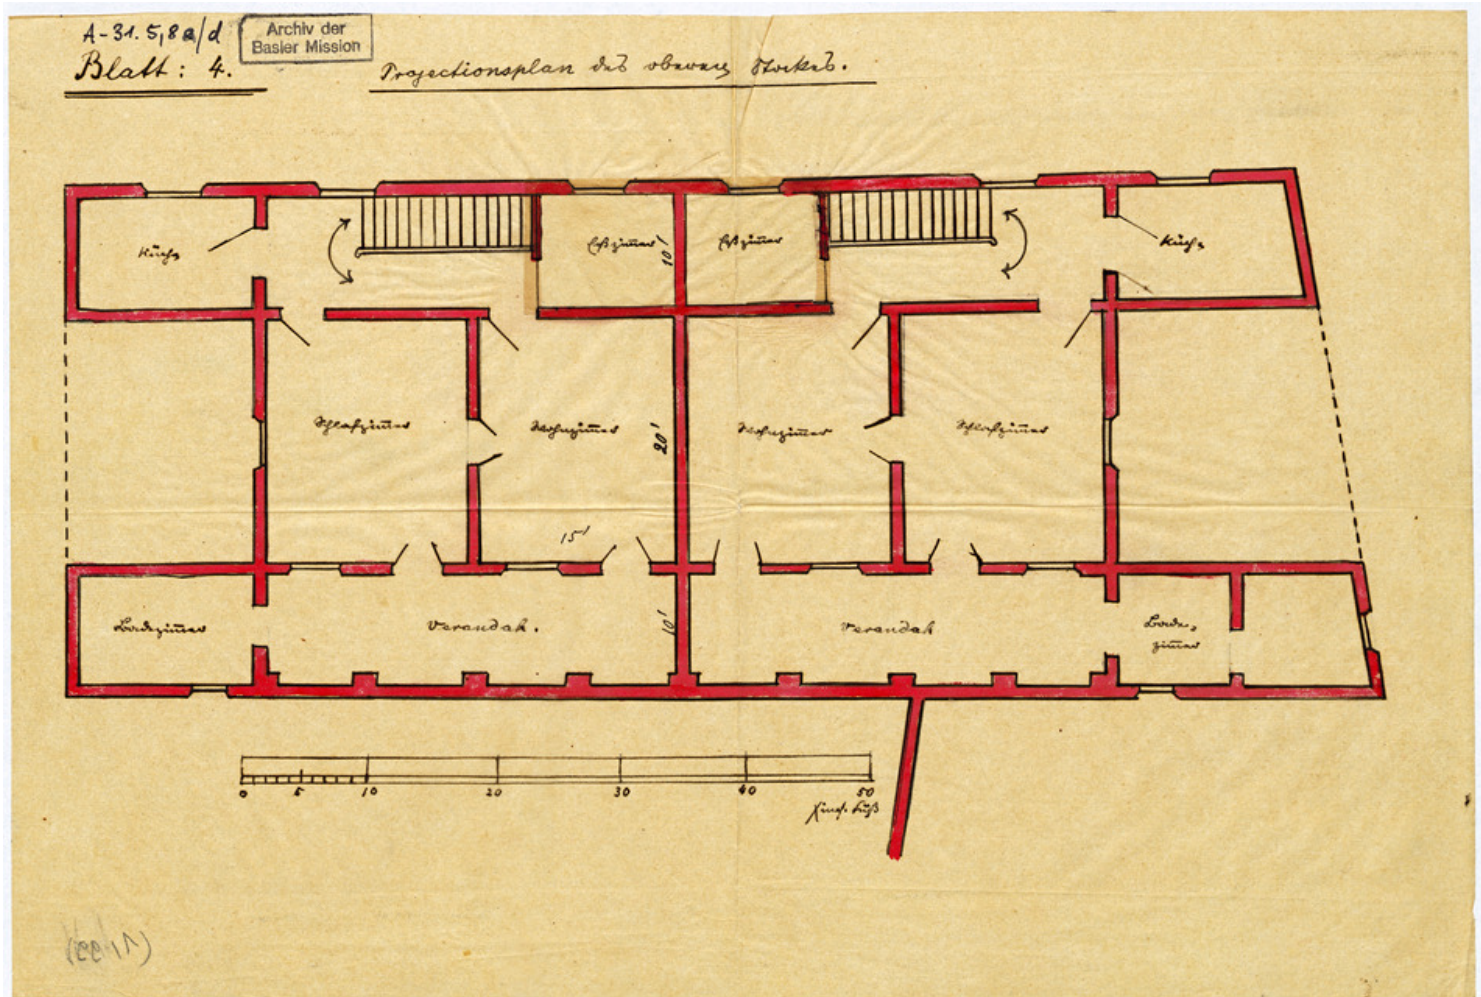 A-31.5,8a/d
Archiv der
Basler Mission
Blatt: 4.
Projectionsplan des oberen Stockes.
Küche
Esszimmer
10'
Esszimmer
Küche
Schlafzimmer
Wohnzimmer
20'
Wohnzimmer
Schlafzimmer
15'
Badezimmer
Verandah.
10'
Verandah
Bade-
zimmer
0 5 10 20 30 40 50
Fuß